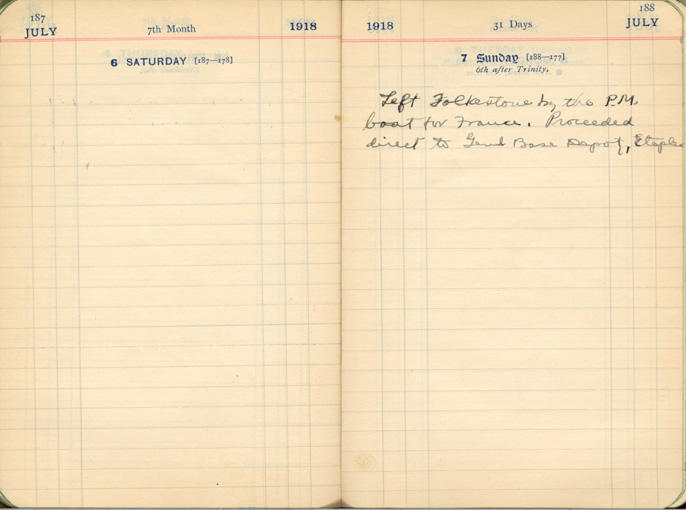 187
JULY
7th Month
1918
6 SATURDAY [187–178]
1918
31 Days
188
JULY
7 Sunday [188–177]
6th after Trinity.
Left Folkestone by the P.M.
boat for France. Proceeded
direct to Genl Base Depot, Etaples